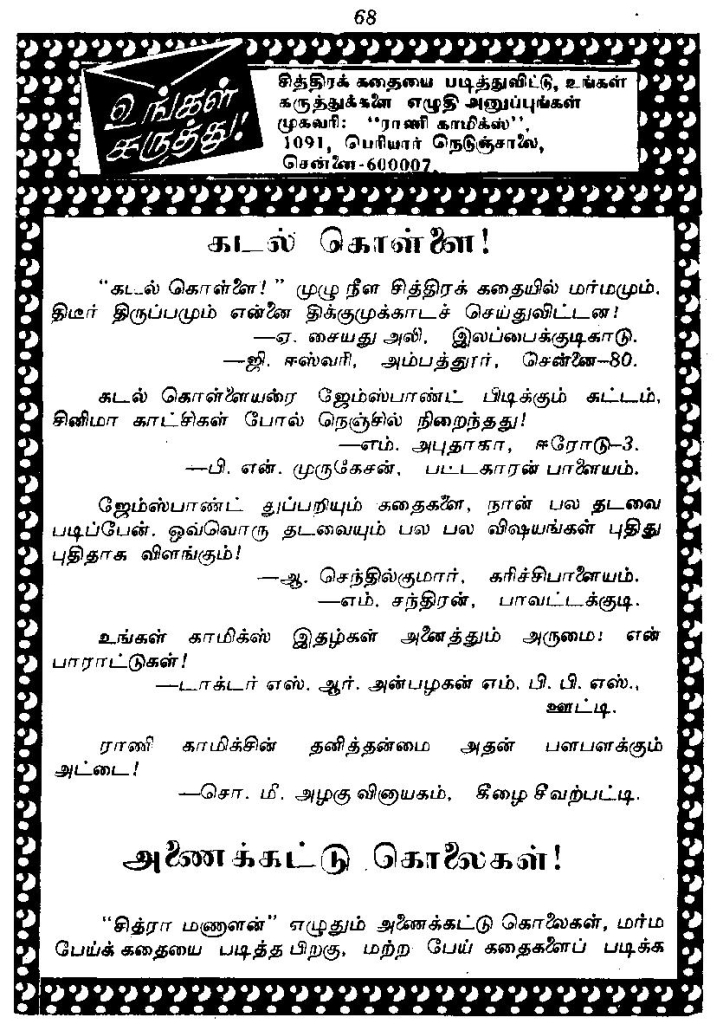 68
உங்கள்
கருத்து!
சித்திரக் கதையை படித்துவிட்டு, உங்கள்
கருத்துக்களை எழுதி அனுப்புங்கள்
முகவரி: “ராணி காமிக்ஸ்”,
1091, பெரியார் நெடுஞ்சாலை,
சென்னை-600007.
கடல் கொள்ளை!
“கடல் கொள்ளை!” முழு நீள சித்திரக் கதையில் மர்மமும்.
திடீர் திருப்பமும் என்னை திக்குமுக்காடச் செய்துவிட்டன!
—ஏ. சையது அலி, இலப்பைக்குடிகாடு.
—ஜி. ஈஸ்வரி, அம்பத்தூர், சென்னை-80.
கடல் கொள்ளையரை ஜேம்ஸ்பாண்ட் பிடிக்கும் கட்டம்,
சினிமா காட்சிகள் போல் நெஞ்சில் நிறைந்தது!
—எம். அபுதாகா, ஈரோடு-3.
—பி. என். முருகேசன், பட்டகாரன் பாளையம்.
ஜேம்ஸ்பாண்ட் துப்பறியும் கதைகளை, நான் பல தடவை
படிப்பேன். ஒவ்வொரு தடவையும் பல பல விஷயங்கள் புதிது
புதிதாக விளங்கும்!
—ஆ. செந்தில்குமார், கரிச்சிபாளையம்.
—எம். சந்திரன், பாவட்டக்குடி.
உங்கள் காமிக்ஸ் இதழ்கள் அனைத்தும் அருமை! என்
பாராட்டுகள்!
—டாக்டர் எஸ். ஆர். அன்பழகன் எம். பி. பி. எஸ்.,
ஊட்டி.
ராணி காமிக்சின் தனித்தன்மை அதன் பளபளக்கும்
அட்டை!
—சொ. மீ. அழகு வினாயகம், கீழை சீவற்பட்டி.
அணைக்கட்டு கொலைகள்!
“சித்ரா மணாளன்” எழுதும் அணைக்கட்டு கொலைகள், மர்ம
பேய்க் கதையை படித்த பிறகு, மற்ற பேய் கதைகளைப் படிக்க